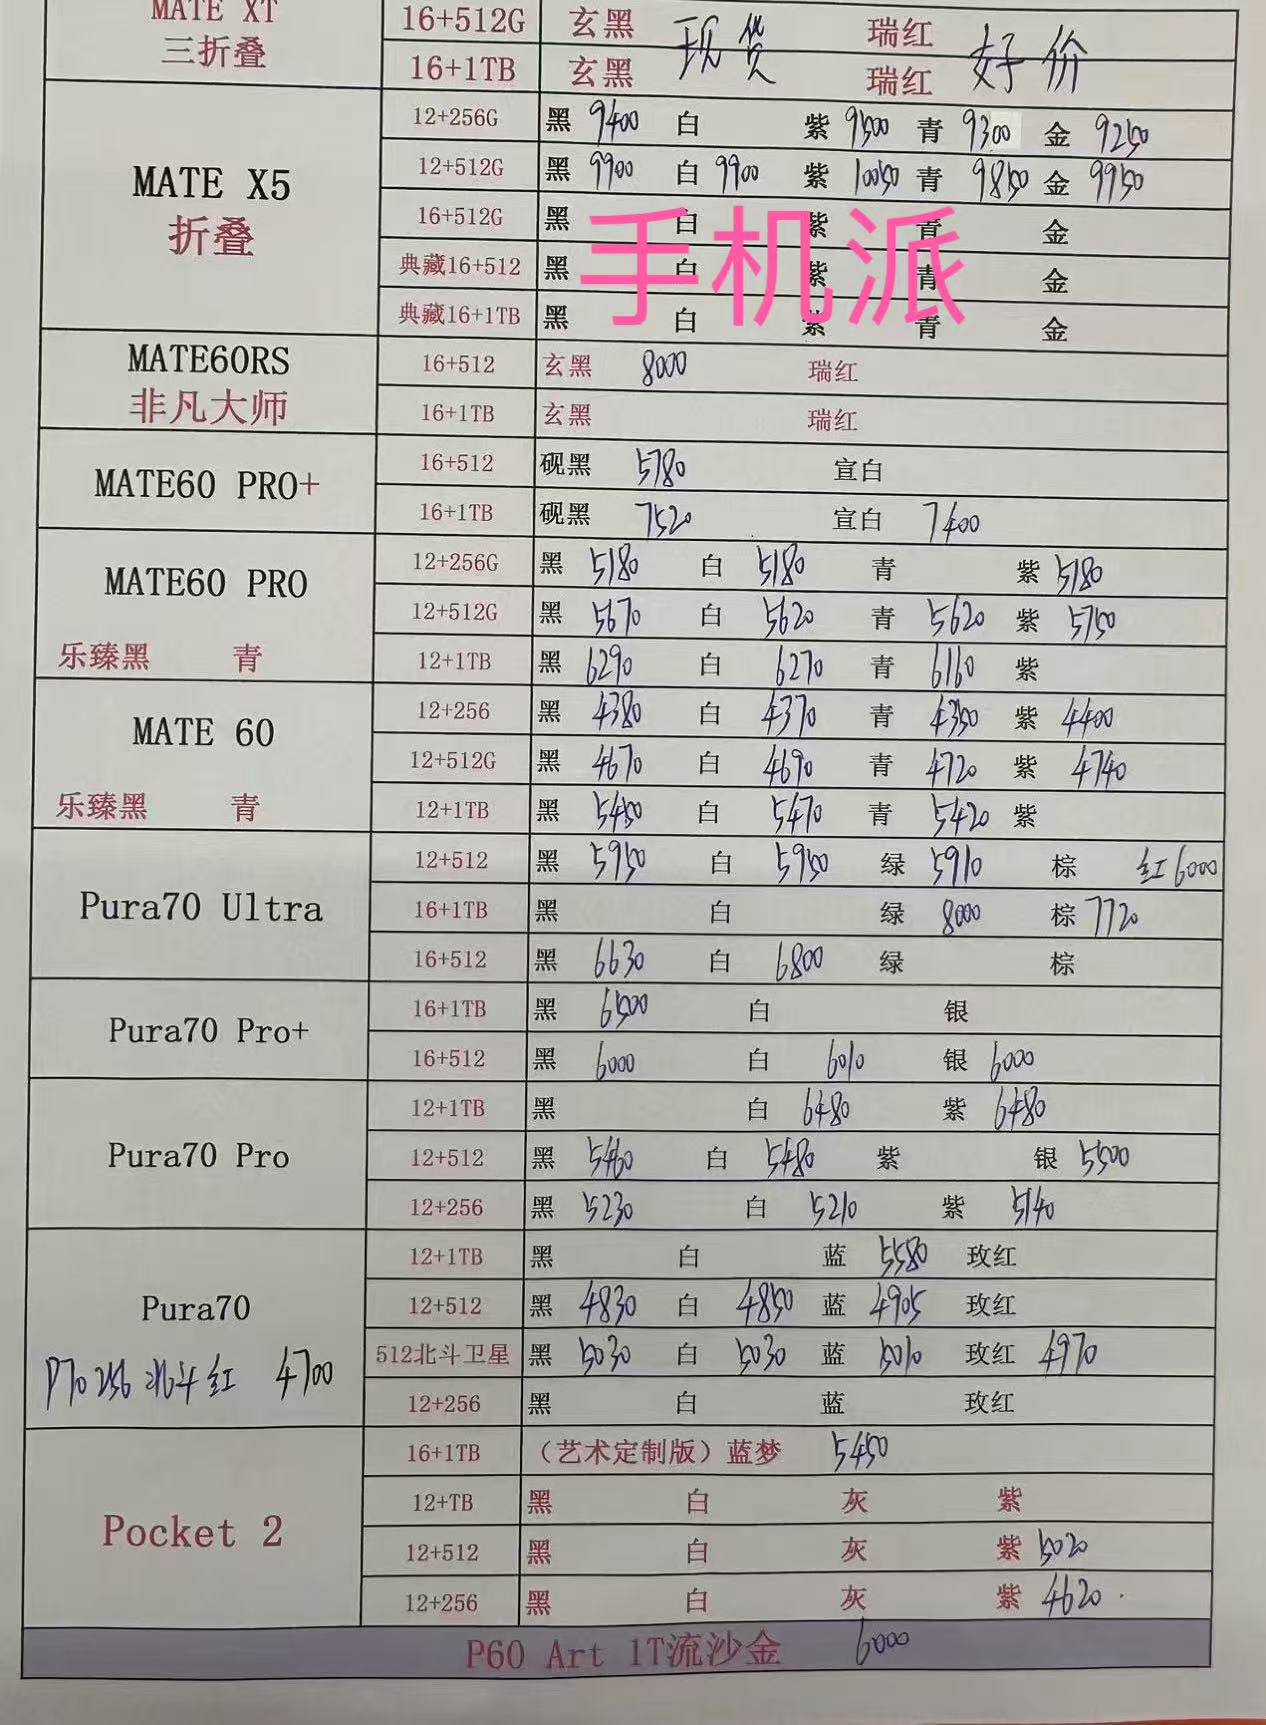 MATE XT 16+512G 玄黑 瑞红
三折叠 16+1TB 玄黑 现货 瑞红 好价
12+256G 黑 9400 白 紫 9500 青 9300 金 9250
MATE X5 12+512G 黑 9900 白 9900 紫 10050 青 9850 金 9950
折叠 16+512G 黑 白 紫 青 金
手机派
典藏16+512 黑 白 紫 青 金
典藏16+1TB 黑 白 紫 青 金
MATE60RS 16+512 玄黑 8000 瑞红
非凡大师 16+1TB 玄黑 瑞红
MATE60 PRO+ 16+512 砚黑 5780 宣白
16+1TB 砚黑 7520 宣白 7400
MATE60 PRO 12+256G 黑 5180 白 5180 青 紫 5180
12+512G 黑 5670 白 5620 青 5620 紫 5750
乐臻黑 青 12+1TB 黑 6290 白 6270 青 6160 紫
MATE 60 12+256 黑 4380 白 4370 青 4350 紫 4400
12+512G 黑 4670 白 4690 青 4720 紫 4740
乐臻黑 青 12+1TB 黑 5450 白 5470 青 5420 紫
12+512 黑 5950 白 5950 绿 5910 棕 红 6000
Pura70 Ultra 16+1TB 黑 白 绿 8000 棕 7720
16+512 黑 6630 白 6800 绿 棕
Pura70 Pro+ 16+1TB 黑 6500 白 银
16+512 黑 6000 白 6010 银 6000
12+1TB 黑 白 6480 紫 6480
Pura70 Pro 12+512 黑 5460 白 5480 紫 银 5500
12+256 黑 5230 白 5210 紫 5140
12+1TB 黑 白 蓝 5580 玫红
Pura70 12+512 黑 4830 白 4850 蓝 4905 玫红
P70 256 北斗 红 4700 512北斗卫星 黑 5030 白 5030 蓝 5010 玫红 4970
12+256 黑 白 蓝 玫红
16+1TB （艺术定制版）蓝梦 5450
12+TB 黑 白 灰 紫
Pocket 2 12+512 黑 白 灰 紫 5020
12+256 黑 白 灰 紫 4620
P60 Art 1T流沙金 6000